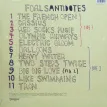 FOALS ANTIDOTES
1 THE FRENCH OPEN
2 CASSIUS
3 RED SOCKS PUGIE
4 OLYMPIC AIRWAYS
5 ELECTRIC BLOOM
6 BALLOONS
7 HEAVY WATER
8 TWO STEPS TWICE
9 BIG BIG LOVE (FIG. 2)
10 LIKE SWIMMING
11 TRON